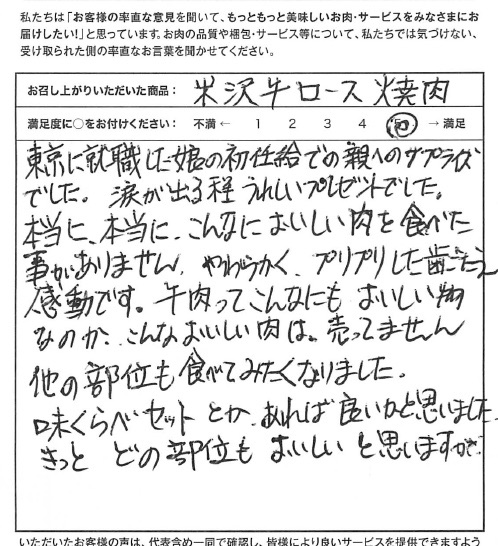 私たちは「お客様の率直な意見を聞いて、もっともっと美味しいお肉・サービスをみなさまにお
届けしたい!」と思っています。お肉の品質や梱包・サービス等について、私たちでは気づけない、
受け取られた側の率直なお言葉を聞かせてください。
お召し上がりいただいた商品: 米沢牛ロース焼肉
満足度に○をお付けください: 不満 ← 1 2 3 4 5 → 満足
東京に就職した娘の初任給での親へのサプライズ
でした。涙が出る程うれしいプレゼントでした。
本当に、本当に、こんなにおいしい肉を食べた
事がありません。やわらかく、プリプリした歯ごたえ
感動です。牛肉ってこんなにもおいしい物
なのか、こんなおいしい肉は。売ってません
他の部位も食べてみたくなりました。
味くらべセットとか、あれば良いかと思いました
きっとどの部位もおいしいと思いますが。
いただいたお客様の声は、代表含め一同で確認し、皆様により良いサービスを提供できますよう